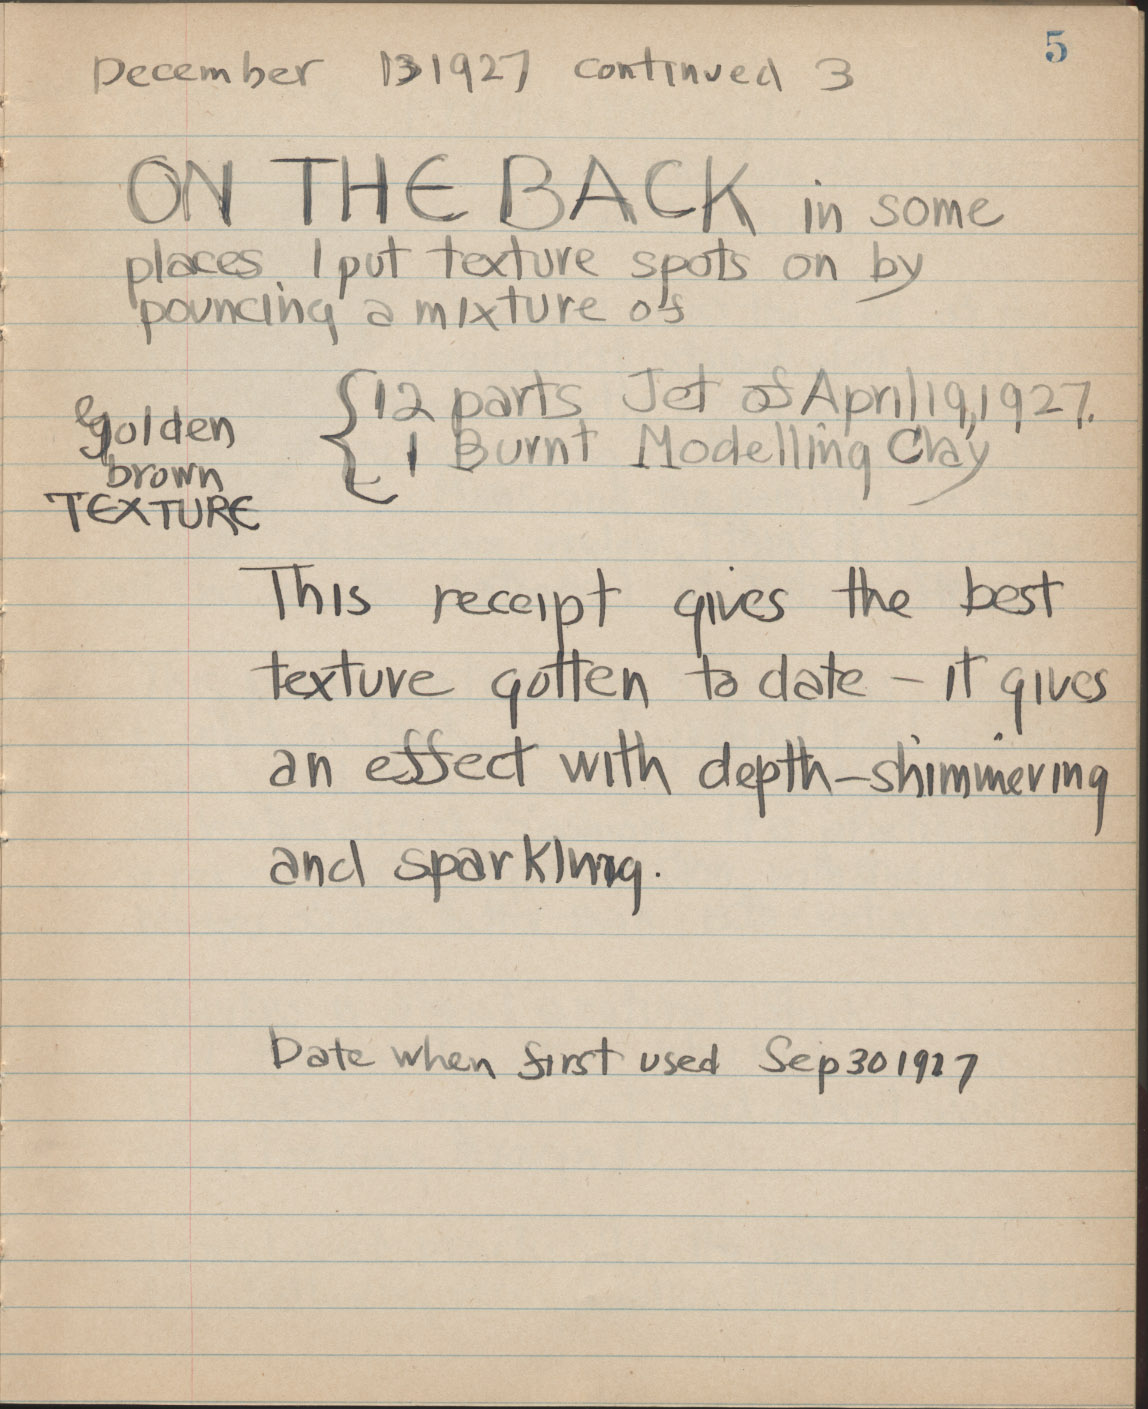 5
December 13 1927 continued 3
ON THE BACK in some
places I put texture spots on by
pouncing a mixture of
12 parts Jet of April 19, 1927.
1 Burnt Modelling Clay
golden
brown
TEXTURE
This receipt gives the best
texture gotten to date – it gives
an effect with depth – shimmering
and sparkling.
Date when first used Sep 30 1927